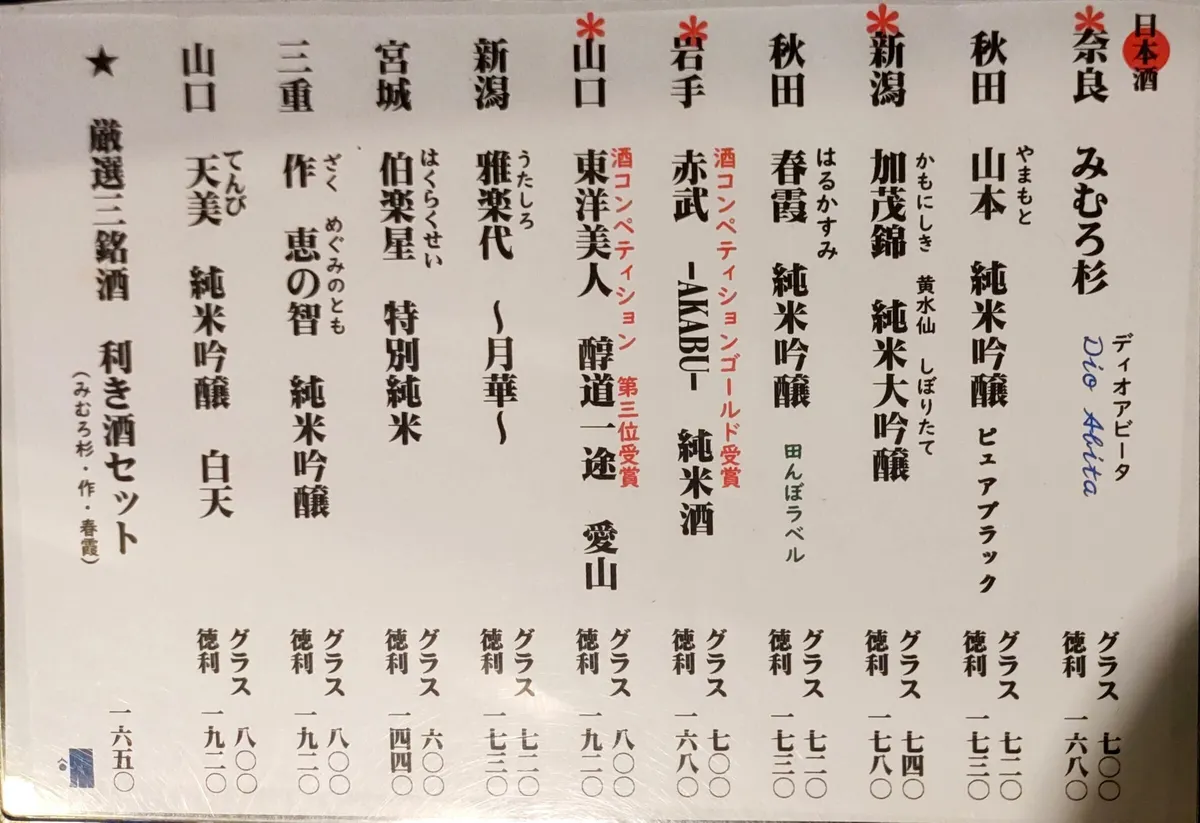 日本酒
*奈良 みむろ杉 ディオアビータ Dio Abita グラス 七〇〇 徳利 一六八〇
秋田 やまもと 山本 純米吟醸 ピュアブラック グラス 七二〇 徳利 一七三〇
*新潟 かもにしき 加茂錦 黄水仙 しぼりたて 純米大吟醸 グラス 七四〇 徳利 一七八〇
秋田 はるかすみ 春霞 純米吟醸 田んぼラベル グラス 七二〇 徳利 一七三〇
*岩手 酒コンペティションゴールド受賞 赤武 -AKABU- 純米酒 グラス 七〇〇 徳利 一六八〇
*山口 酒コンペティション 第三位受賞 東洋美人 醇道一途 愛山 グラス 八〇〇 徳利 一九二〇
新潟 うたしろ 雅楽代 〜月華〜 グラス 七二〇 徳利 一七三〇
宮城 はくらくせい 伯楽星 特別純米 グラス 六〇〇 徳利 一四四〇
三重 ざく めぐみのとも 作 恵の智 純米吟醸 グラス 八〇〇 徳利 一九二〇
山口 てんび 天美 純米吟醸 白天 グラス 八〇〇 徳利 一九二〇
★ 厳選三銘酒 利き酒セット 一六五〇
(みむろ杉・作・春霞)